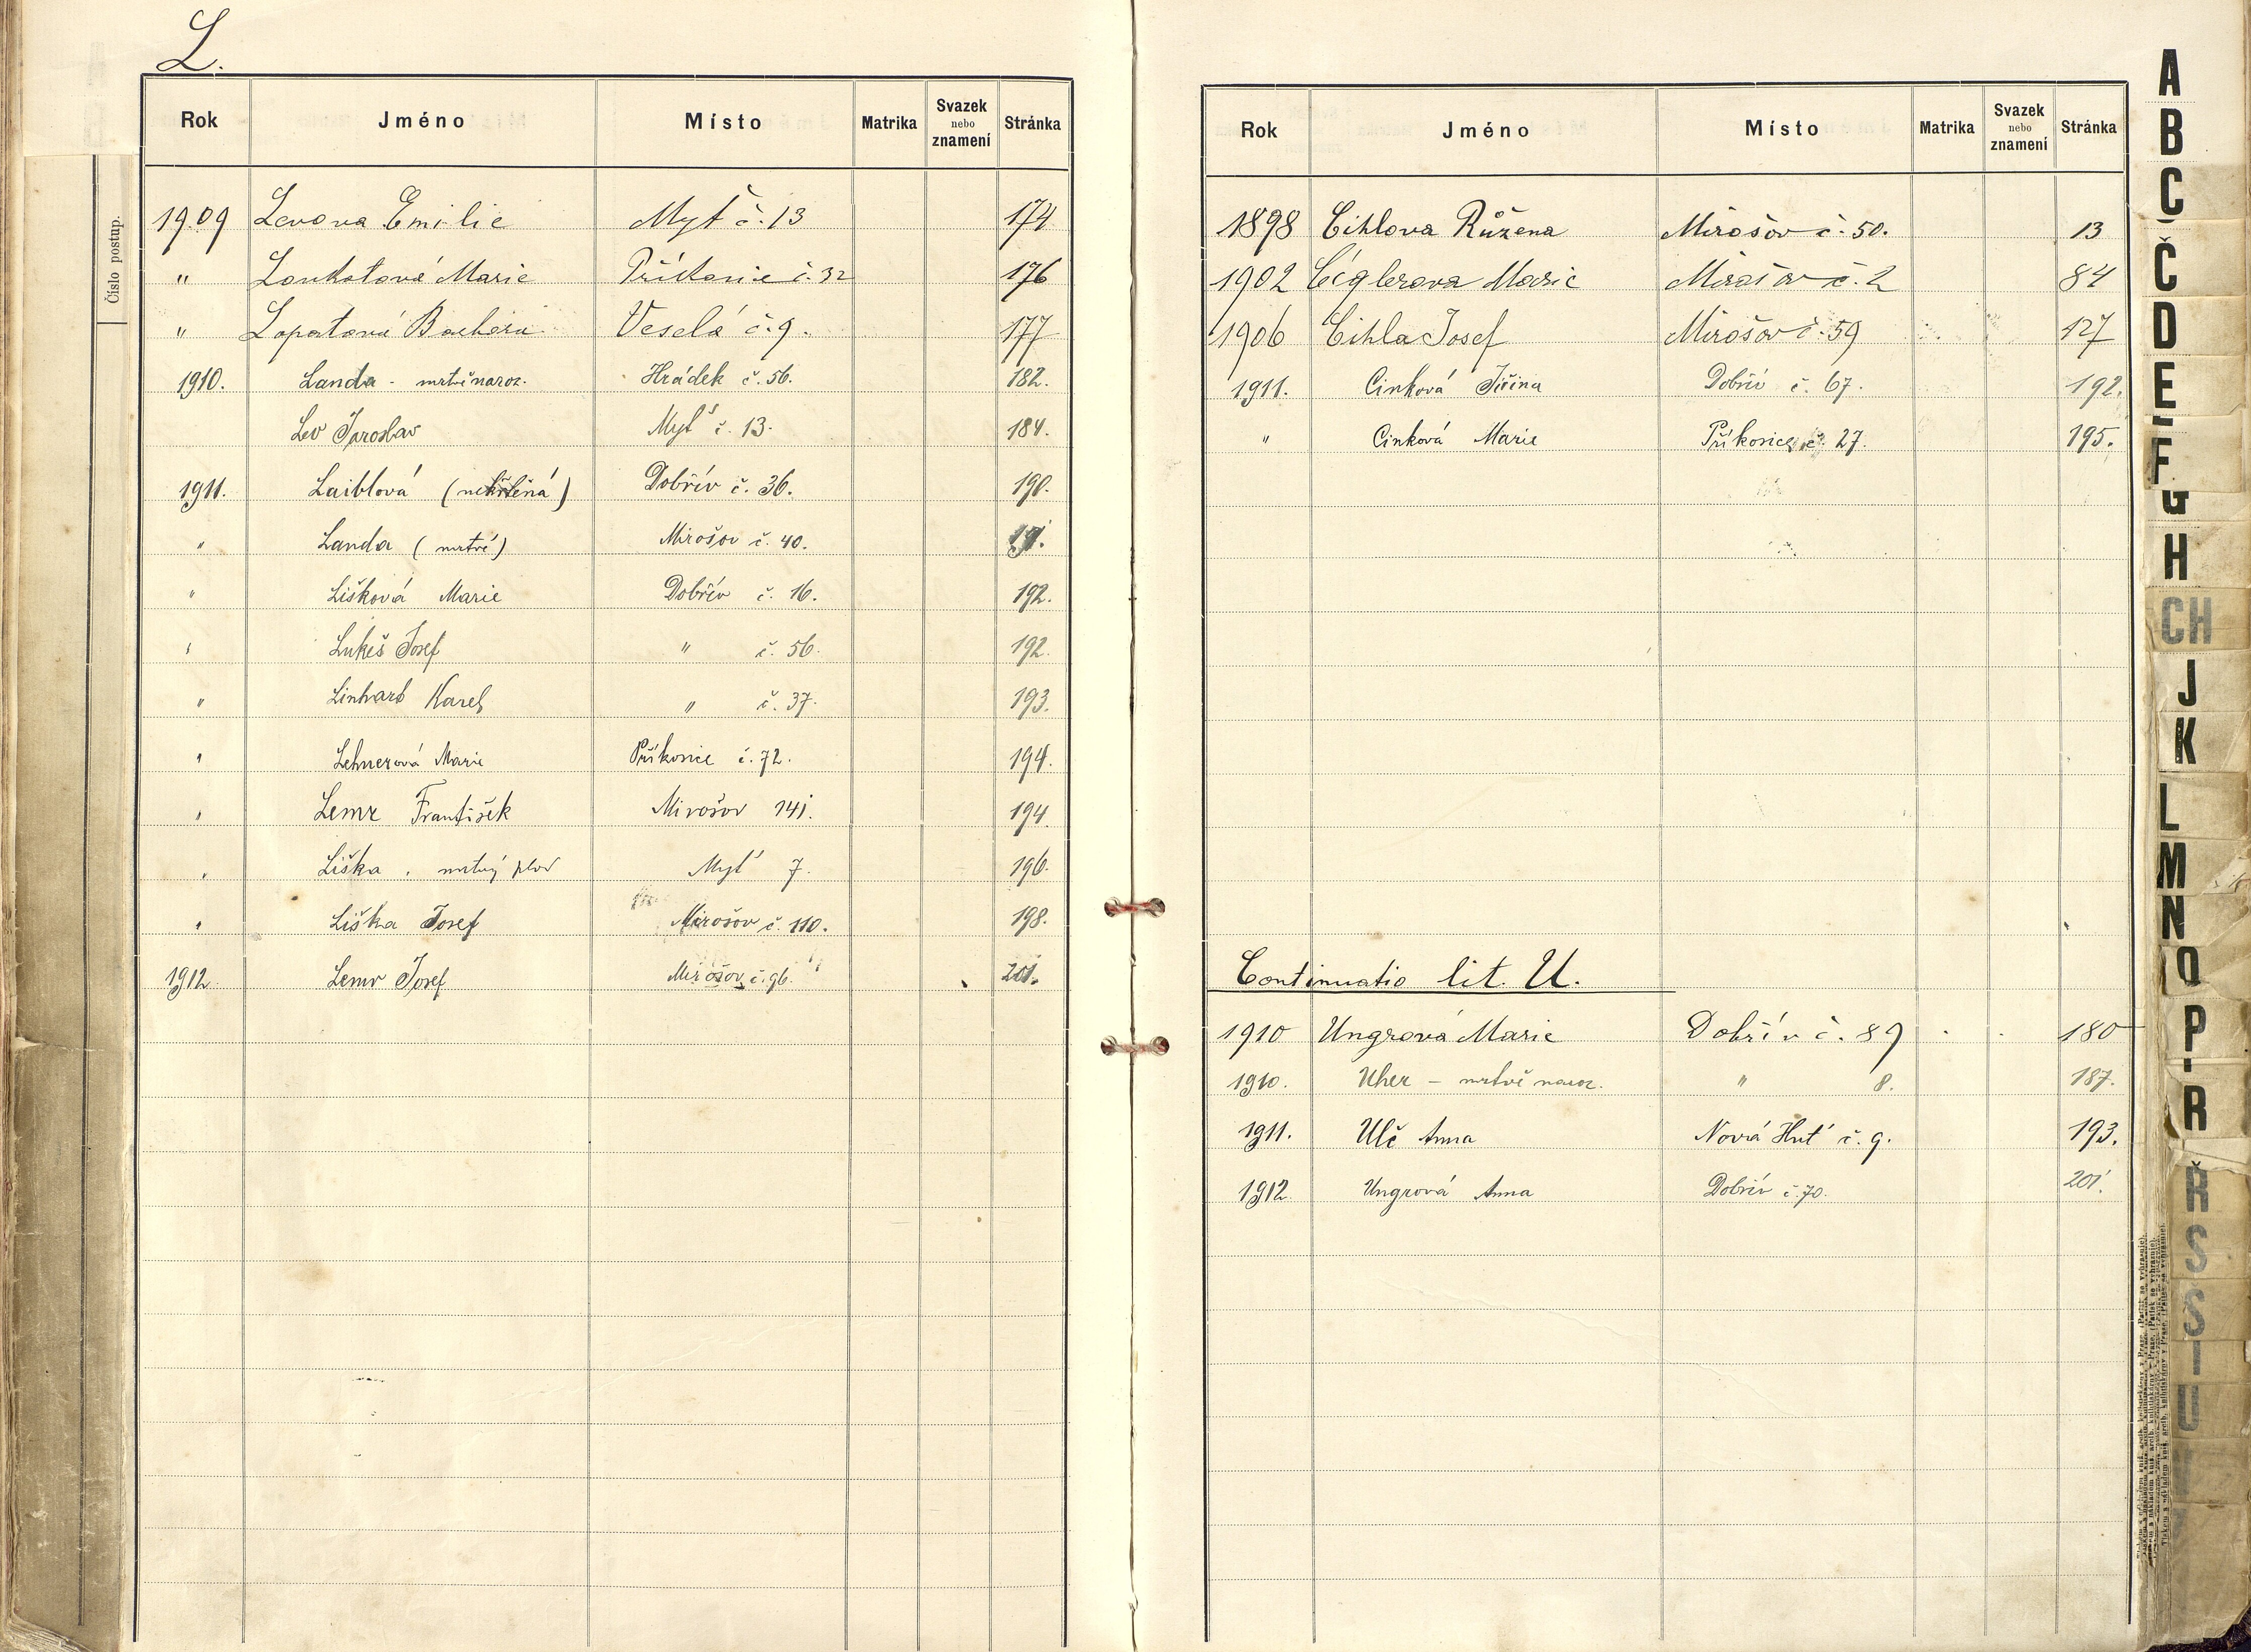 L.
Rok Jméno Místo Matrika Svazek nebo znamení Stránka
Číslo postup.
1909 Levova Emilie Myť č. 13 174
" Loukotová Marie Příkosice č. 32 176
" Lopatová Barbora Veselá č. 9. 177
1910. Landa - mrtvě naroz. Hrádek č. 56. 182.
Lev Jaroslav Myť č. 13. 184.
1911. Laiblová (nekřtěná) Dobřív č. 36. 190.
" Landa (mrtvé) Mirošov č. 40.
" Lišková Marie Dobřív č. 16. 192.
" Lukeš Josef " č. 56. 192.
" Linhart Karel " č. 37. 193.
" Lehnerová Marie Příkosice č. 72. 194.
" Lemr František Mirošov 141. 194.
" Liška . mrtvý plod Myť 7. 196.
" Liška Josef Mirošov č. 110. 198.
1912. Lemr Josef Mirošov č. 96. 201.
Rok Jméno Místo Matrika Svazek nebo znamení Stránka
1898 Cihlova Růžena Mirošov č. 50. 13
1902 Cíglerova Marie Mirošov č. 2 84
1906 Cihla Josef Mirošov č. 59 127
1911. Cinková Jiřina Dobřív č. 67. 192.
" Cinková Marie Příkosice č. 27. 195.
Continuatio lit. U.
1910 Ungrová Marie Dobřív č. 89 180
1910. Uher - mrtvě naroz. " 8. 187.
1911. Ulč Anna Nová Huť č. 9. 193.
1912. Ungrová Anna Dobřív č. 70. 201.
A
B
C
Č
D
E
F
G
H
CH
J
K
L
M
N
O
P
R
Ř
S
Š
T
U